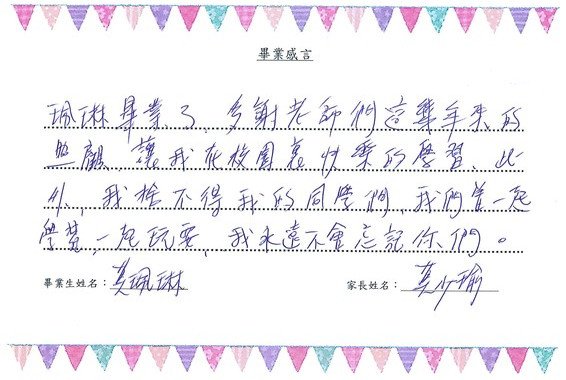 畢業感言
珮琳畢業了,多謝老師們這幾年來的
照顧,讓我在校園裏快樂的學習,此
外,我捨不得我的同學們,我們曾一起
學習,一起玩耍,我永遠不會忘記你們。
畢業生姓名:莫珮琳 家長姓名:莫少瑜